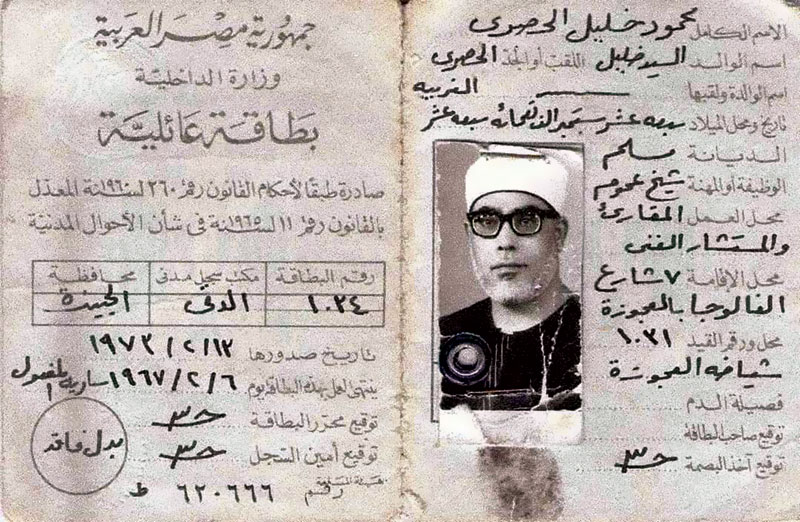 جمهورية مصر العربية
وزارة الداخلية
بطاقة عائلية
صادرة طبقا لأحكام القانون رقم ٢٦٠ لسنة ١٩٦٠ المعدل
بالقانون رقم ١١ لسنة ١٩٦٥ فى شأن الأحوال المدنية
رقم البطاقة مكتب سجل مدنى محافظة
١٠٣٤ الدقى الجيزة
تاريخ صدورها ١٩٧٣/٢/١٣
ينتهى العمل بهذه البطاقة يوم ١٩٦٧/٢/٦ سارية المفعول
توقيع محرر البطاقة
توقيع أمين السجل
بدل فاقد
رقم ٦٢٠٦٦٦ ط
الاسم الكامل محمود خليل الحصرى
اسم الوالد السيد خليل اللقب أو الجد الحصرى
اسم الوالدة ولقبها
الغربيه
تاريخ ومحل الميلاد سبعه عشر سبتمبر الف تسعمائه سبعه عشر
الديانة مسلم
الوظيفة أو المهنة شيخ عموم
محل العمل المقارئ
والمستشار الفنى
محل الإقامة ٧ شارع
الفالوجا بالعجوزة
محل ورقم القيد ١٠٣١
شياخه العجوزة
فصيلة الدم
توقيع صاحب البطاقة
توقيع آخذ البصمة